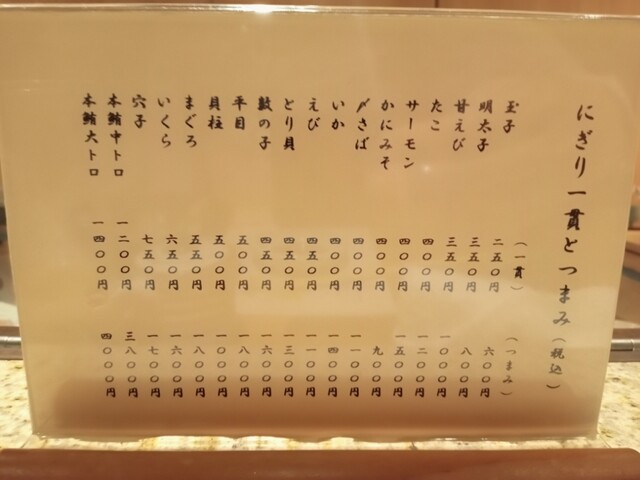 にぎり一貫とつまみ（税込）
（一貫）（つまみ）
玉子 二五〇円 六〇〇円
明太子 三五〇円 八〇〇円
甘えび 三五〇円 一〇〇〇円
たこ 四〇〇円 一二〇〇円
サーモン 四〇〇円 一五〇〇円
かにみそ 四〇〇円 九〇〇円
〆さば 四〇〇円 一一〇〇円
いか 四〇〇円 一四〇〇円
えび 四五〇円 一一〇〇円
とり貝 四五〇円 一三〇〇円
数の子 四五〇円 一六〇〇円
平目 五〇〇円 一八〇〇円
貝柱 五〇〇円 一〇〇〇円
まぐろ 五五〇円 一八〇〇円
いくら 六五〇円 一六〇〇円
穴子 七五〇円 一七〇〇円
本鮪中トロ 一二〇〇円 三八〇〇円
本鮪大トロ 一四〇〇円 四〇〇〇円